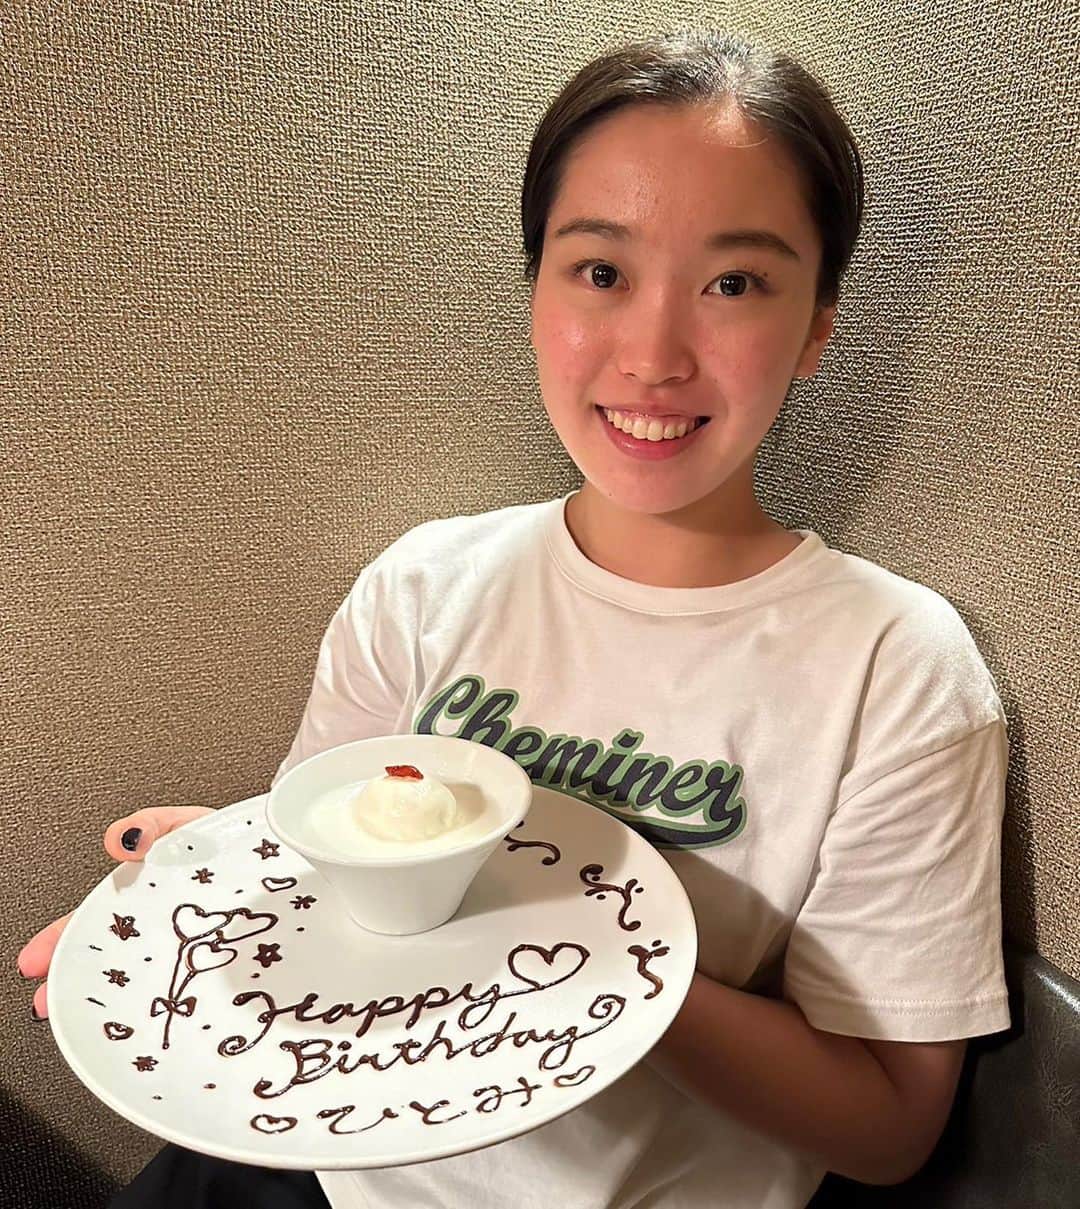 Cheminer
Happy
Birthday
ひとみ